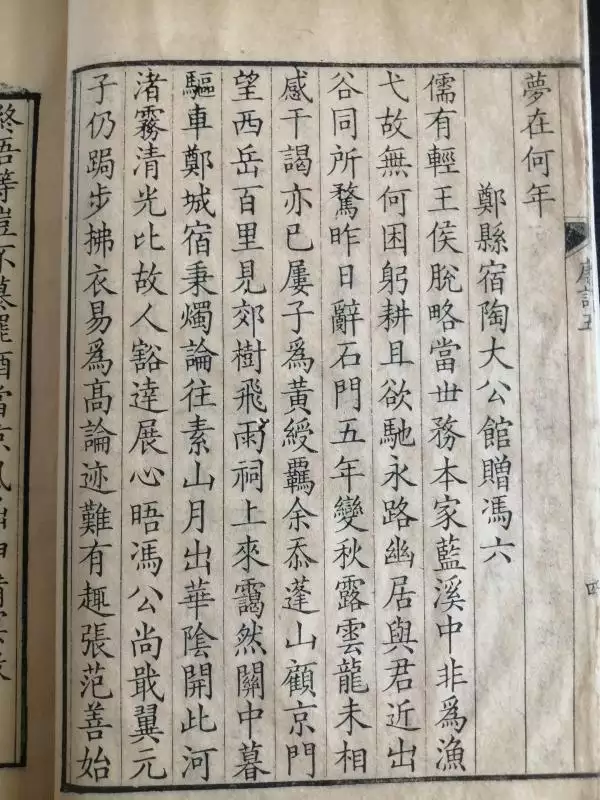 夢在何年
鄭縣宿陶大公館贈馮六
儒有輕王侯脫略當丗務本家藍溪中非爲漁
弋故無何困躬耕且欲馳永路幽居與君近出
谷同所騖昨日辭石門五年變秋露雲龍未相
感干謁亦已屢子爲黃綬羈余忝蓬山顧京門
望西岳百里見郊樹飛雨祠上來靄然關中暮
驅車鄭城宿秉燭論往素山月出華陰開此河
渚霧清光比故人豁達展心晤馮公尚戢翼元
子仍跼步拂衣易爲髙論迹難有趣張范善始
終吾等豈不慕罷酒當